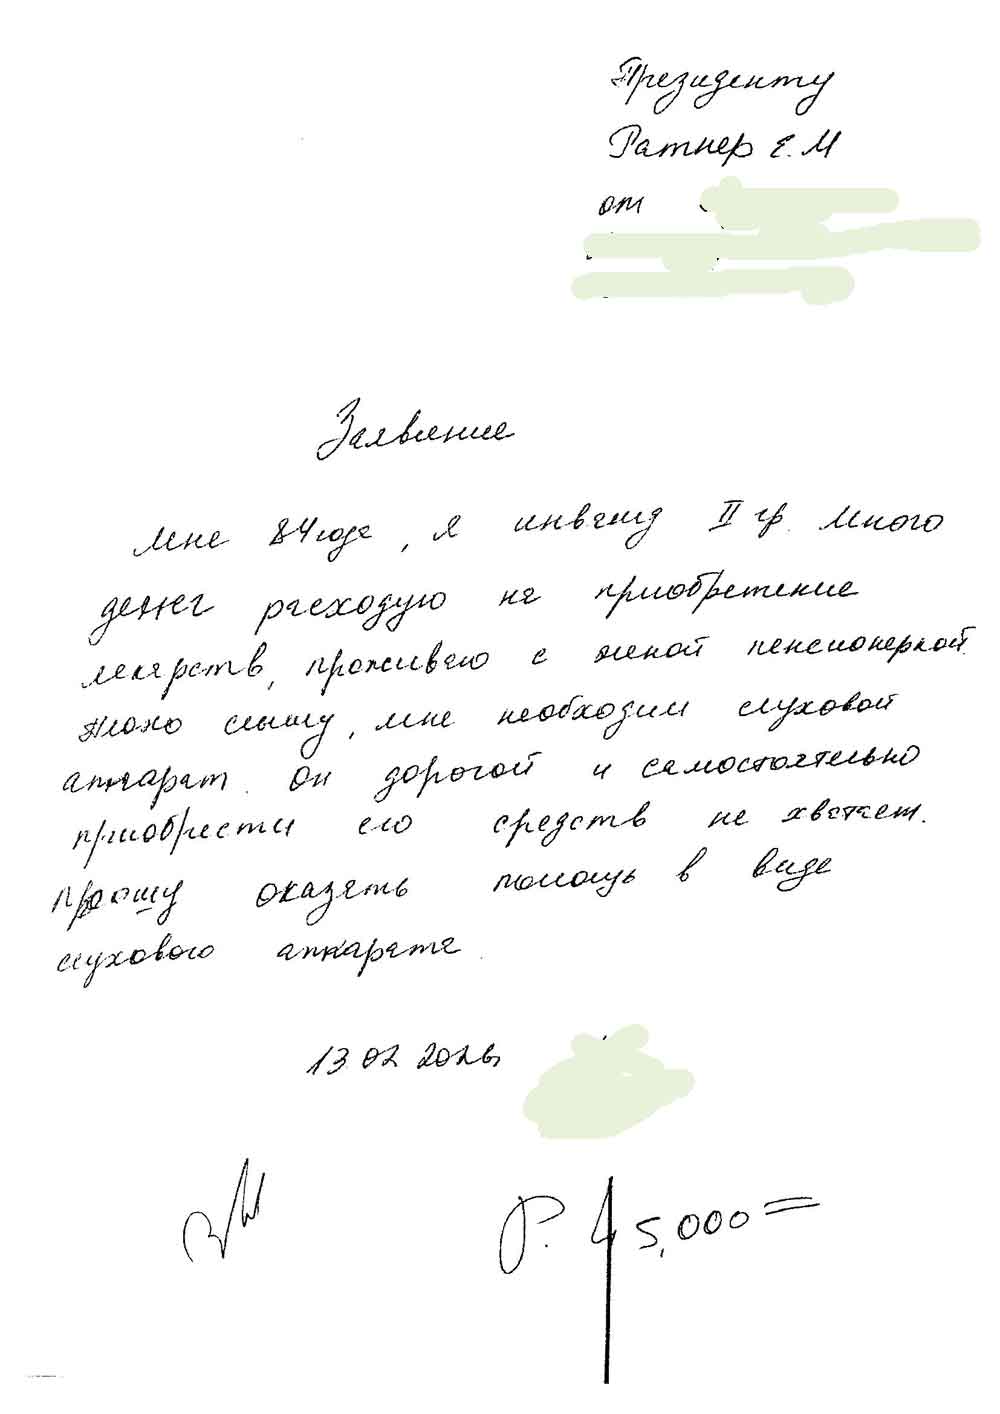 Президенту
Ратнер Е. М
от
Заявление
Мне 84 года, я инвалид II гр. Много
денег расходую на приобретение
лекарств, проживаю с женой пенсионеркой.
Плохо слышу, мне необходим слуховой
аппарат. Он дорогой и самостоятельно
приобрести его средств не хватает.
Прошу оказать помощь в виде
слухового аппарата.
13.02 202
Р. 45,000=